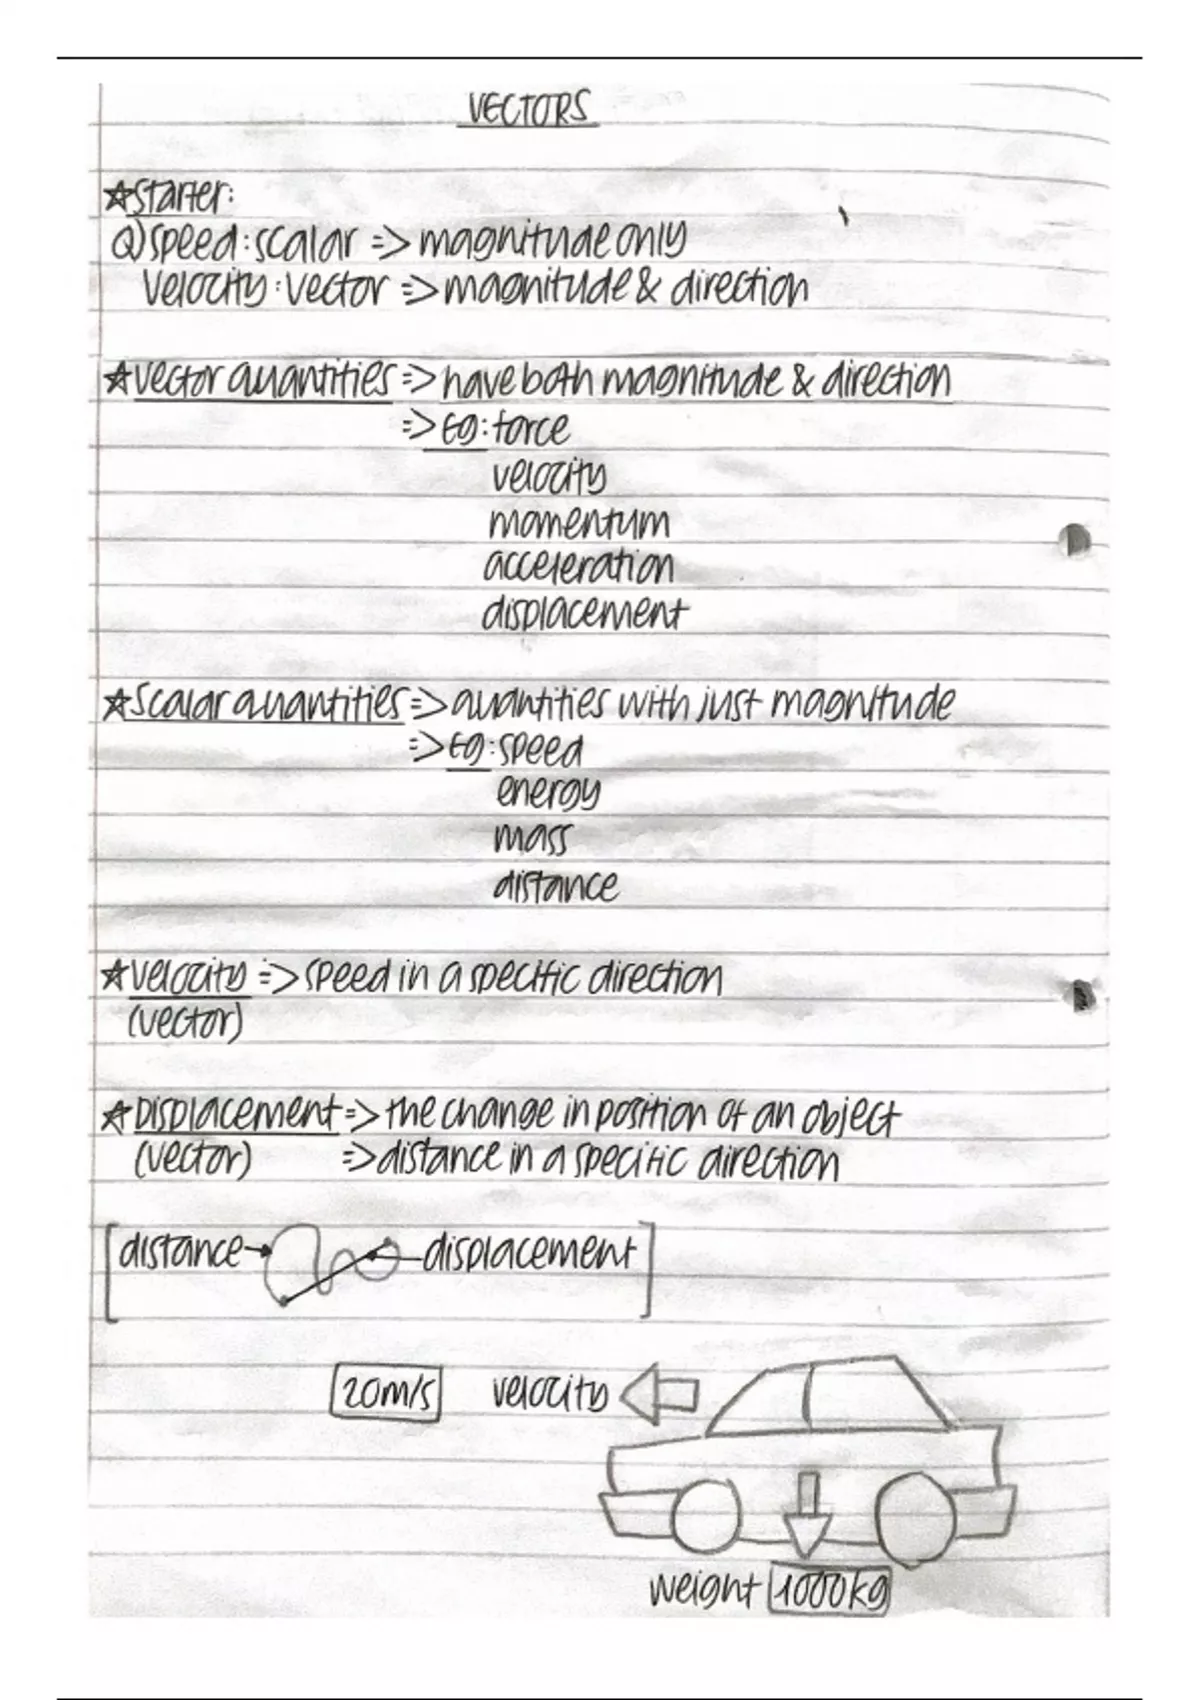 VECTORS
☆Starter:
Q) speed: scalar => magnitude only
velocity: vector => magnitude & direction
☆vector quantities => have both magnitude & direction
=> Eg: force
velocity
momentum
acceleration
displacement
☆scalar quantities => quantities with just magnitude
=> Eg: speed
energy
mass
distance
☆velocity => speed in a specific direction
(vector)
☆Displacement => the change in position of an object
(vector) => distance in a specific direction
[distance displacement]
20m/s velocity
weight 1000kg